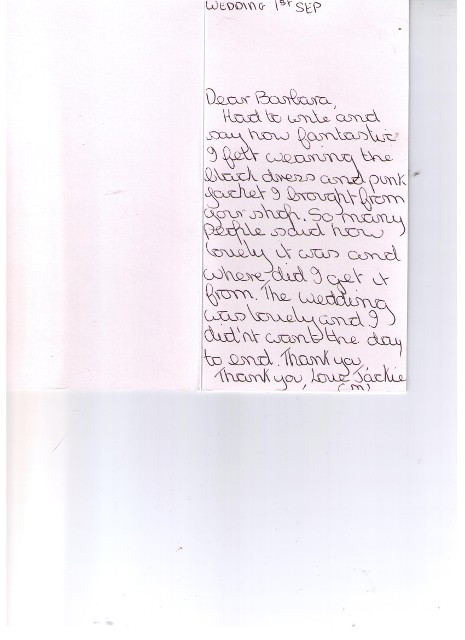 WEDDING 1ST SEP
Dear Barbara,
Had to write and
say how fantastic
I felt wearing the
black dress and punk
jacket I brought from
your shop. So many
people said how
lovely it was and
where did I get it
from. The wedding
was lovely and I
did'nt want the day
to end. Thank you
Thank you, Love Jackie
(M)